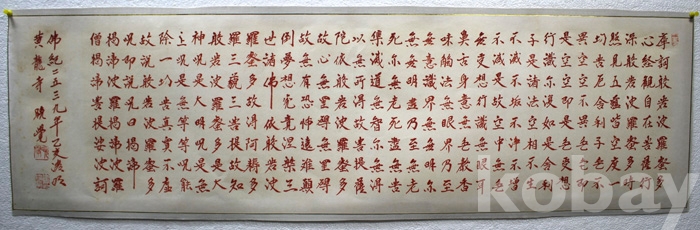 摩訶般若波羅蜜多
心經觀自在菩薩行
深般若波羅蜜多時
照見五蘊皆空度一
切苦厄舍利子色不
異空空不異色色即
是空空即是色受想
行識亦復如是舍利
子是諸法空相不生
不滅不垢不淨不增
不減是故空中無色
無受想行識無眼耳
鼻舌身意無色聲香
味觸法無眼界乃至
無意識界無無明亦
無無明盡乃至無老
死亦無老死盡無苦
集滅道無智亦無得
以無所得故菩提薩
陀依般若波羅蜜多
故心無罣礙無罣礙
故無有恐怖遠離顚
倒夢想究竟涅槃三
世諸佛依般若波
羅蜜多故得阿耨多
羅三藐三菩提故知
般若波羅蜜多是大
神呪是大明呪是無
上呪是無等等呪能
除一切苦眞實不虛
故說般若波羅蜜多
呪即說呪曰揭諦
揭諦波羅揭諦波羅
僧揭諦菩提娑婆訶
佛紀二五三九年乙亥
黃龍寺
kobay